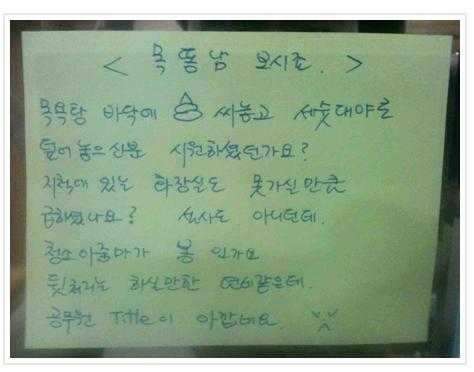 < 목똥남 보시죠. >
목욕탕 바닥에 싸놓고 세숫대야로
덮어 놓으신분 시원하셨던가요?
지척에 있는 화장실도 못가실만큼
급하셨나요? 설사도 아니던데.
청소아줌마가 봉 인가요
뒷처리는 하실만한 연세같은데.
공무원 Title이 아깝네요.